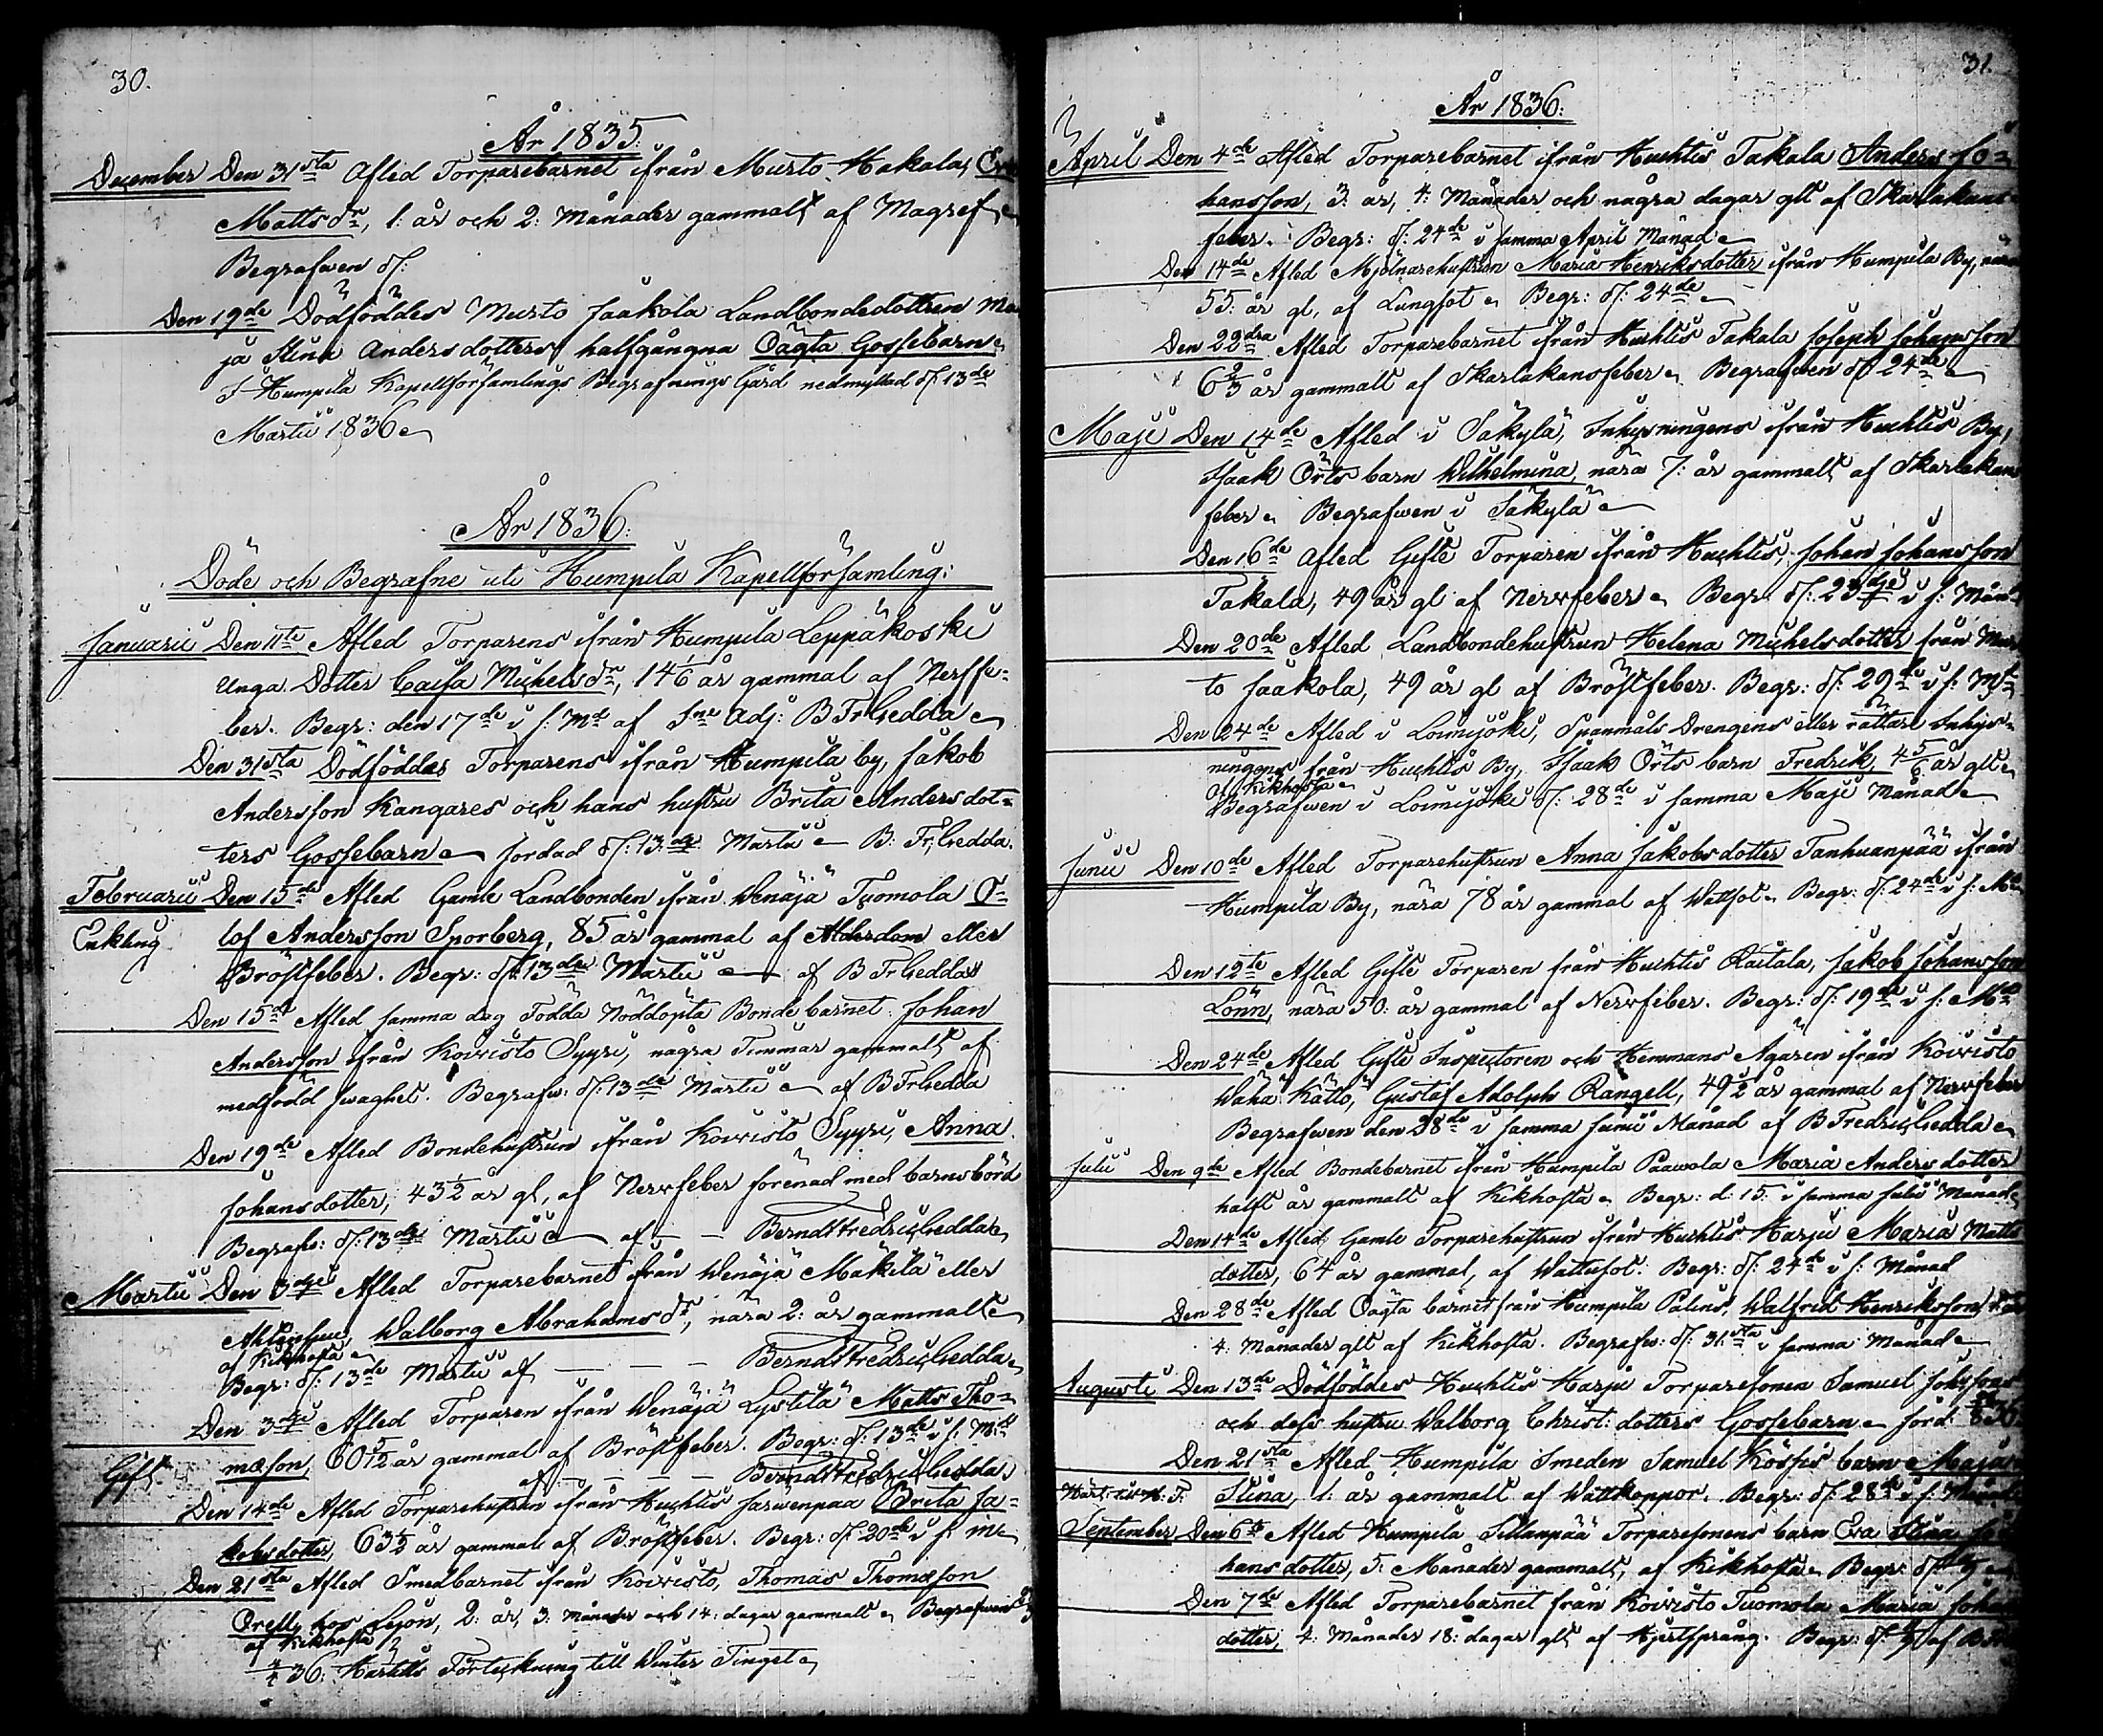 30.
År 1835.
December Den 31sta Afled Torparebarnet ifrån Murto Hakala,
Mattsdr, 1: år och 2: Månader gammalt af Magref
Begrafwen d:
Den 19de Dödföddes Murto Jaakola Landbondedottren Ma
ja Stina Andersdotters halfgångna Oägta Gossebarn
I Humpila Kapellförsamlings Begrafnings Gård nedmyllad d: 13de
Martii 1836
År 1836:
Döde och Begrafne uti Humpila Kapellförsamling:
Januarii Den 11te Afled Torparens ifrån Humpila Leppäkoski
Unga Dotter Caisa Michelsdr, 14 1/6 år gammal af Nerffe-
ber. Begr: den 17de i s: Md af Adj: B Fr Gedda
Den 31sta Dödföddes Torparens ifrån Humpila by, Jakob
Andersson Kangares och hans hustru Brita Andersdot-
ters Gossebarn Jordad d: 13de Martii B: Fr: Gedda.
Februarii Den 15de Afled Gamle Landbonden ifrån Wenäjä Tuomola O-
Enkling lof Andersson Sporberg, 85 år gammal af Ålderdom eller
Bröstfeber. Begr: d: 13de Martii af B Fr Gedda
Den 15de Afled samma dag Födda Nöddöpta Bonde barnet Johan
Andersson ifrån Koivisto Syyri, några Timmar gammalt af
medfödd swaghet. Begrafw: d: 13de Martii af B Fr Gedda
Den 19de Afled Bondehustrun ifrån Koivisto Syyri, Anna
Johansdotter, 43 1/2 år gl, af Nerwfeber förenad med barnsbörd
Begrafw: d: 13de Martii af Berndt Fredric Gedda
Martii Den 3dje Afled Torparebarnet ifrån Wenäjä Mäkilä eller
Walborg Abrahamsdr, nära 2: år gammalt
af Kikhosta
Begr: d: 13de Martii af Berndt Fredric Gedda
Den 3dje Afled Torparen ifrån Wenäjä Lystilä Matts Tho-
Gift mæson, 60 5/12 år gammal af Bröstfeber. Begr: d: 13de i s: Md
af Berndt Fredric Gedda
Den 14de Afled Torparehustrun ifrån Huchtis Jarwenpää Brita Ja-
kobsdotter, 63 1/2 år gammal af Bröstfeber. Begr: d: 20de i s: M
Den 21sta Afled Smedbarnet ifrån Koivisto, Thomas Thomæson
Orell, hos Lejon, 2: år, 3: Månader och 14: dagar gammalt Begrafwen
af Kikhosta
36: Förteckning till Winter Tinget
31.
År 1836:
April Den 4de Afled Torparebarnet ifrån Huchtis Takala Anders Jo-
hansson, 3: år, 4: Månader och några dagar glt af Skarlakans-
feber. Begr: d: 24de i samma April Månad
Den 14de Afled Mjölnarehustrun Maria Henriksdotter ifrån Humpila By, nära
55: år gl, af Lungsot Begr: d: 24de
Den 22dra Afled Torparebarnet ifrån Huchtis Takala Joseph Johansson
6 2/3 år gammalt af Skarlakansfeber Begrafwen d: 24de
Maji Den 14de Afled i Säkylä, Inhysningens ifrån Huchtis By,
Isaak Örts barn Wilhelmina, nära 7: år gammalt af Skarlakans
feber Begrafwen i Säkylä
Den 16de Afled Gifte Torparen ifrån Huchtis, Johan Johansson
Takala, 49 år gl af Nerwfeber Begr: d: 23dje i s: Mån
Den 20de Afled Landbondehustrun Helena Michelsdotter från Mur
to Jaakola, 49 år gl af Bröstfeber. Begr: d: 29de i s: Md
Den 24de Afled i Loimijoki, Spanmåls Drengens eller rättare Inhys-
ningens från Huchtis By, Isaak Örts barn Fredrik, 4 5/6 år glt
af Kikhosta
Begrafwen i Loimijoki d: 28de i samma Maji Månad
Junii Den 10de Afled Torparehustrun Anna Jakobsdotter Tanhuanpää ifrån
Humpila By, nära 78 år gammal af Wattsot Begr: d: 24de i s: Md
Den 12te Afled Gifte Torparen från Huchtis Raitala, Jakob Johansson
Lönn, nära 50: år gammal af Nerwfeber. Begr: d: 19de i s: Md
Den 24de Afled Gifte Inspectoren och Hemmans Ägaren ifrån Koivisto
Wähä Kätto, Gustaf Adolph Rangell, 49 1/2 år gammal af Nerwfeber
Begrafwen den 28de i samma Junii Månad af B Fredric Gedda
Julii Den 9de Afled Bondebarnet ifrån Humpila Paawola Maria Andersdotter
halft år gammalt af Kikhosta Begr: d: 15: i samma Julii Månad
Den 14de Afled Gamle Torparehustrun ifrån Huchtis Harju Maria Matts
dotter, 64 år gammal, af Wattusot: Begr: d: 24de i s: Månad
Den 28de Afled Oägta barnet från Humpila Palins, Walfrid Henriksson,
4: Månader glt af Kikhosta. Begrafw: d: 31sta i samma Månad
Augusti Den 13de Dödföddes Huchtis Harju Torparesonen Samuel
och dess hustru Walborg Christ: dotters Gossebarn Jord:
Den 21sta Afled Humpila Smeden Samuel barn Maja
Stina, 1: år gammalt af Wattkoppor. Begr: d: 28de i s: Månad
September Den 6te Afled Humpila Sillanpää Torparesonens barn Eva Stina Jo
hansdotter, 5: Månader gammalt, af Kikhosta Begr: d:
Den 7de Afled Torparebarnet från Koivisto Tuomola Maria Johans
dotter, 4: Månader 18: dagar glt af Hjertsprång. Begr: d: